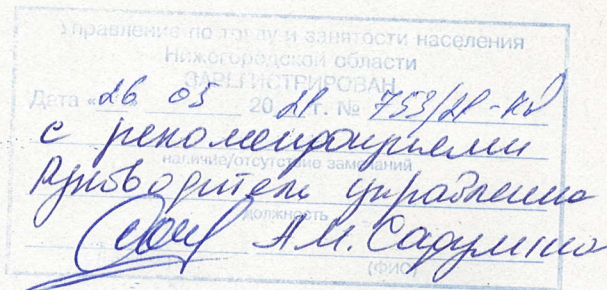 Управление по труду и занятости населения
Нижегородской области
ЗАРЕГИСТРИРОВАН
Дата «26 05 2021г. № 753/21-КД
с рекомендациями
наличие/отсутствие замечаний
руководитель управления
должность
А.М. Садулина
(ФИО)